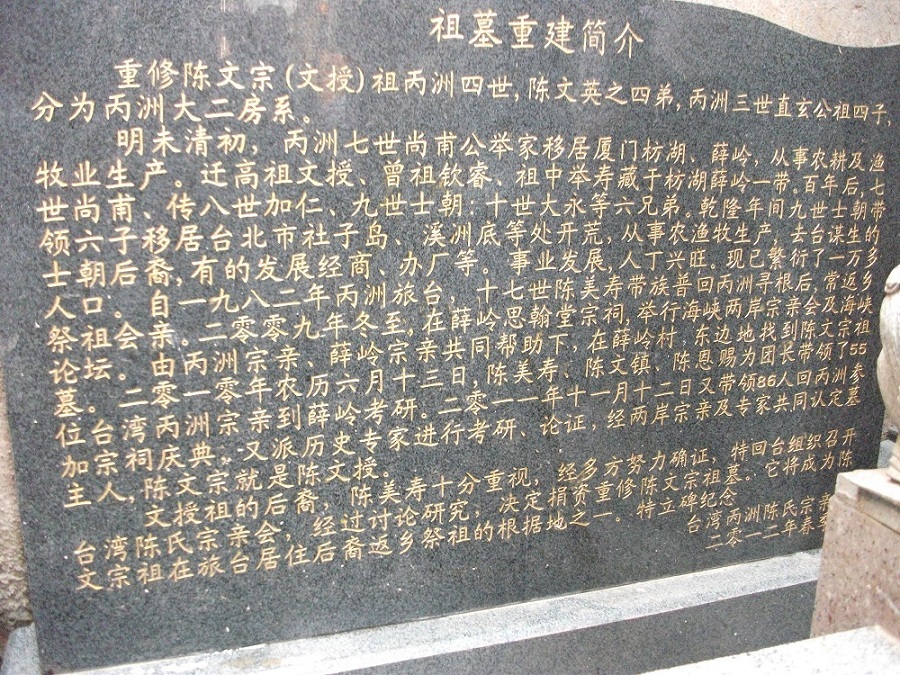 祖墓重建简介
重修陈文宗(文授)祖丙洲四世,陈文英之四弟,丙洲三世直玄公祖四子,
分为丙洲大二房系。
明未清初，丙洲七世尚甫公举家移居厦门枋湖、薛岭，从事农耕及渔
牧业生产。迁高祖文授、曾祖钦睿、祖中举寿藏于枋湖薛岭一带。百年后,七
世尚甫、传八世加仁、九世士朝．十世大永等六兄弟。乾隆年间九世士朝带
领六子移居台北市社子岛、溪洲底等处开荒，从事农渔牧生产，去台谋生的
士朝后裔,有的发展经商、办厂等。事业发展,人丁兴旺。现已繁衍了一万多
人口。自一九八二年丙洲旅台，十七世陈美寿带族普回丙洲寻根后,常返乡
祭祖会亲。二零零九年冬至,在薛岭思翰堂宗祠,举行海峡两岸宗亲会及海峡
论坛。由丙洲宗亲、薛岭宗亲共同帮助下,在薛岭村,东边地找到陈文宗祖
墓。二零一零年农历六月十三日,陈美寿、陈文镇、陈恩赐为团长带领了55
位台湾丙洲宗亲到薛岭考研。二零一一年十一月十二日又带领86人回丙洲参
加宗祠庆典。又派历史专家进行考研、论证,经两岸宗亲及专家共同认定墓
主人,陈文宗就是陈文授。
文授祖的后裔，陈美寿十分重视，经多方努力确证，特回台组织召开
台湾陈氏宗亲会；经过讨论研究，决定捐资重修陈文宗祖墓。它将成为陈
文宗祖在旅台居住后裔返乡祭祖的根据地之一。特立碑纪念
台湾丙洲陈氏宗亲
二零一二年春